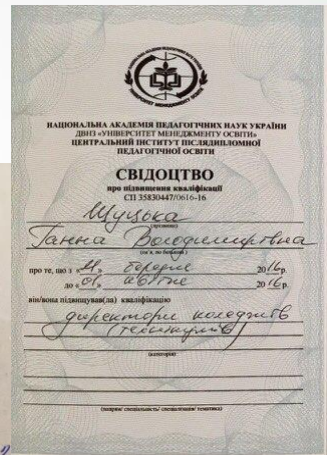 НАЦІОНАЛЬНА АКАДЕМІЯ ПЕДАГОГІЧНИХ НАУК УКРАЇНИ
ДВНЗ «УНІВЕРСИТЕТ МЕНЕДЖМЕНТУ ОСВІТИ»
ЦЕНТРАЛЬНИЙ ІНСТИТУТ ПІСЛЯДИПЛОМНОЇ
ПЕДАГОГІЧНОЇ ОСВІТИ
СВІДОЦТВО
про підвищення кваліфікації
СП 35830447/0616-16
Щуцька
(прізвище)
Ганна Володимирівна
про те, що з « » 2016 р.
до «01» квітня 2016 р.
він/вона підвищував(ла) кваліфікацію
директори коледжів
(технікумів)
(категорія)
(напрям/ спеціальність/ спеціалізація/ тематика)